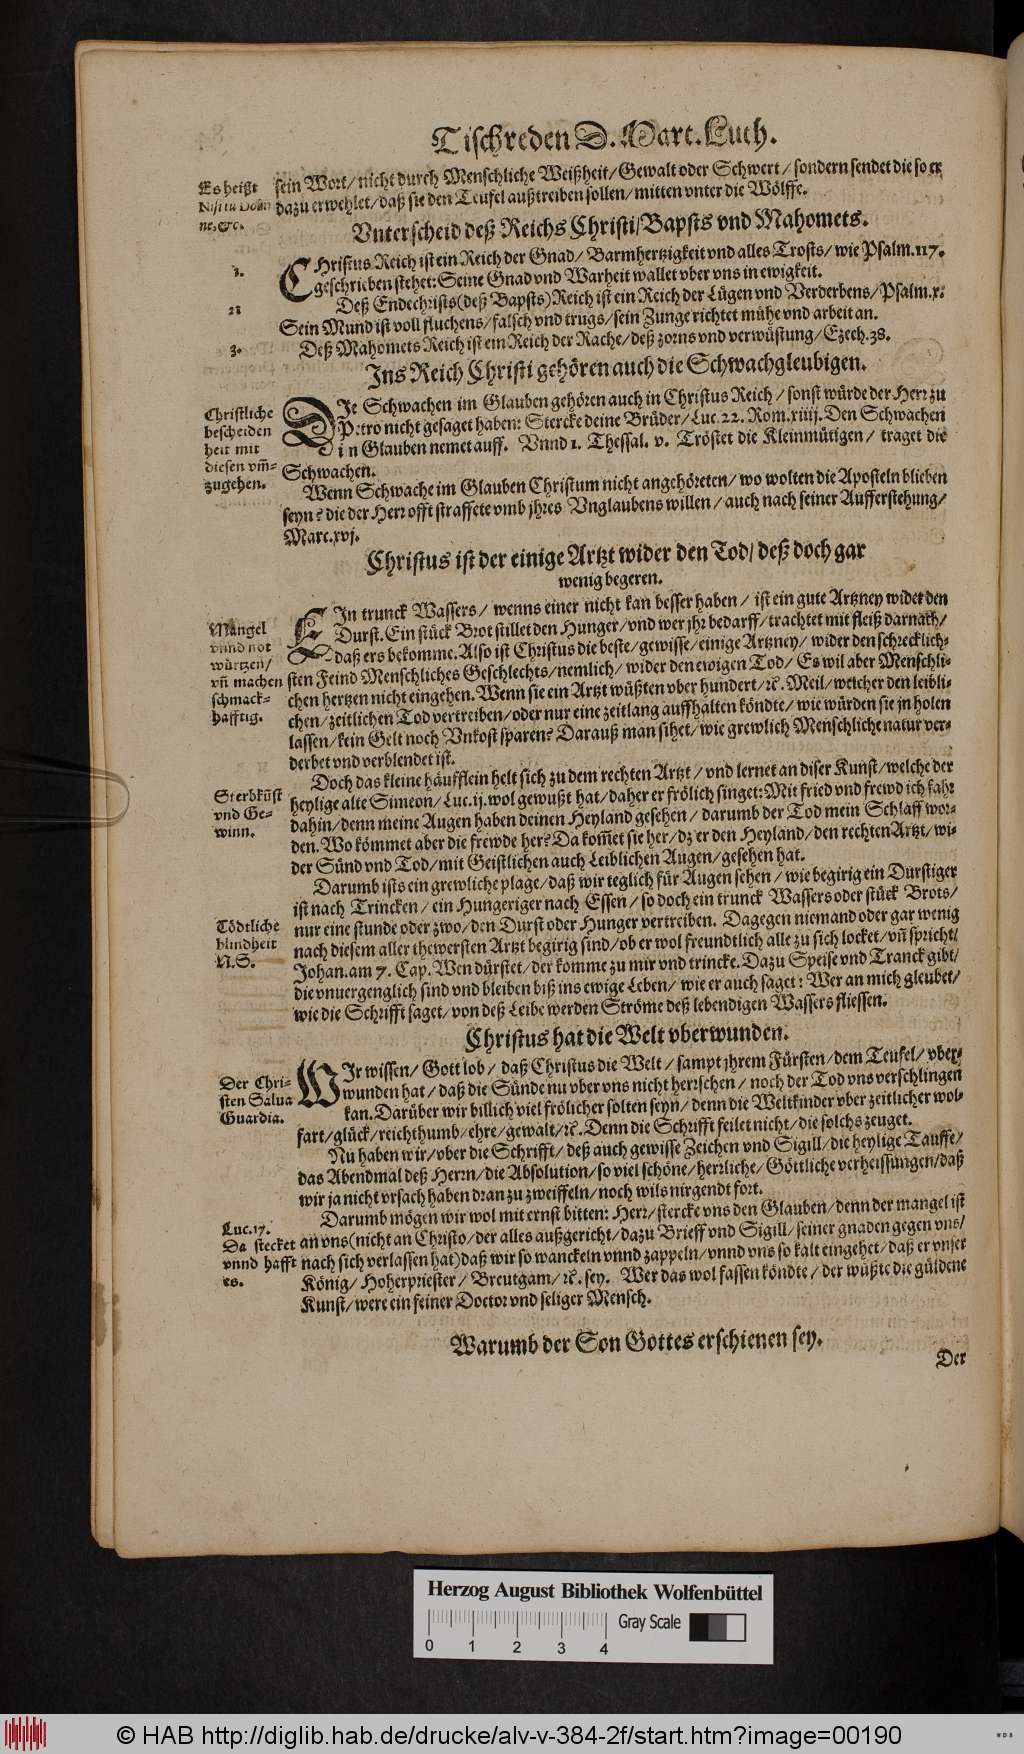 Tischreden D. Mart. Luth.
Es heißt
Nisi tu Domi
ne, &c.
sein Wort / nicht durch Menschliche Weißheit / Gewalt oder Schwert / sondern sendet die so er
dazu erwehlet / daß sie den Teufel außtreiben sollen / mitten vnter die Wölffe.
Vnterscheid deß Reichs Christi / Bapsts vnd Mahomets.
1.
CHristus Reich ist ein Reich der Gnad / Barmhertzigkeit vnd alles Trosts / wie Psalm. 117.
geschrieben stehet: Seine Gnad vnd Warheit wallet vber vns in ewigkeit.
2
Deß Endechrists (deß Bapsts) Reich ist ein Reich der Lügen vnd Verderbens / Psalm. x.
Sein Mund ist voll fluchens / falsch vnd trugs / sein Zunge richtet mühe vnd arbeit an.
3.
Deß Mahomets Reich ist ein Reich der Rache / deß zorns vnd verwüstung / Ezech. 38.
Ins Reich Christi gehören auch die Schwachgleubigen.
Christliche
bescheiden
heit mit
diesen vm̃-
zugehen.
DIe Schwachen im Glauben gehören auch in Christus Reich / sonst würde der Herr zu
Petro nicht gesaget haben: Stercke deine Brüder / Luc. 22. Rom. xiiij. Den Schwachen
in Glauben nemet auff. Vnnd 1. Thessal. v. Tröstet die Kleinmütigen / traget die
Schwachen.
Wenn Schwache im Glauben Christum nicht angehöreten / wo wolten die Aposteln blieben
seyn? die der Herr offt straffete vmb jhres Vnglaubens willen / auch nach seiner Aufferstehung /
Marc. xvj.
Christus ist der einige Artzt wider den Tod / deß doch gar
wenig begeren.
Mangel
vnnd not
würtzen /
vñ machen
schmack-
hafftig.
EIn trunck Wassers / wenns einer nicht kan besser haben / ist ein gute Artzney wider den
Durst. Ein stück Brot stillet den Hunger / vnd wer jhr bedarff / trachtet mit fleiß darnach /
daß ers bekomme. Also ist Christus die beste / gewisse / einige Artzney / wider den schrecklich-
sten Feind Menschliches Geschlechts / nemlich / wider den ewigen Tod / Es wil aber Menschli-
chen hertzen nicht eingehen. Wenn sie ein Artzt wüßten vber hundert / ꝛc. Meil / welcher den leibli-
chen / zeitlichen Tod vertreiben / oder nur eine zeitlang auffhalten köndte / wie würden sie jn holen
lassen / kein Gelt noch Vnkost sparen? Darauß man sihet / wie grewlich Menschliche natur ver-
derbet vnd verblendet ist.
Sterbkũst
vnd Ge-
winn.
Doch das kleine häufflein helt sich zu dem rechten Artzt / vnd lernet an diser Kunst / welche der
heylige alte Simeon / Luc. ij. wol gewußt hat / daher er frölich singet: Mit fried vnd frewd ich fahr
dahin / denn meine Augen haben deinen Heyland gesehen / darumb der Tod mein Schlaff wor-
den. Wo kömmet aber die frewde her? Da kom̃et sie her / dz er den Heyland / den rechten Artzt / wi-
der Sünd vnd Tod / mit Geistlichen auch Leiblichen Augen / gesehen hat.
Tödtliche
blindheit
N. S.
Darumb ists ein grewliche plage / daß wir teglich für Augen sehen / wie begirig ein Durstiger
ist nach Trincken / ein Hungeriger nach Essen / so doch ein trunck Wassers oder stück Brots /
nur eine stunde oder zwo / den Durst oder Hunger vertreiben. Dagegen niemand oder gar wenig
nach diesem aller thewersten Artzt begirig sind / ob er wol freundtlich alle zu sich locket / vñ spricht /
Johan. am 7. Cap. Wen dürstet / der komme zu mir vnd trincke. Dazu Speise vnd Tranck gibt /
die vnuergenglich sind vnd bleiben biß ins ewige Leben / wie er auch saget: Wer an mich gleubet /
wie die Schrifft saget / von deß Leibe werden Ströme deß lebendigen Wassers fliessen.
Christus hat die Welt vberwunden.
Der Chri-
sten Salua
Guardia.
WIr wissen / Gott lob / daß Christus die Welt / sampt jhrem Fürsten / dem Teufel / vber-
wunden hat / daß die Sünde nu vber vns nicht herrschen / noch der Tod vns verschlingen
kan. Darüber wir billich viel frölicher solten seyn / denn die Weltkinder vber zeitlicher wol-
fart / glück / reichthumb / ehre / gewalt / ꝛc. Denn die Schrifft feilet nicht / die solchs zeuget.
Nu haben wir / vber die Schrifft / deß auch gewisse Zeichen vnd Sigill / die heylige Tauffe /
das Abendmal deß Herrn / die Absolution / so viel schöne / herrliche / Göttliche verheissungen / daß
wir ja nicht vrsach haben dran zu zweiffeln / noch wils nirgendt fort.
Luc. 17.
Da stecket
vnnd hafft
es.
Darumb mögen wir wol mit ernst bitten: Herr / stercke vns den Glauben / denn der mangel ist
an vns (nicht an Christo / der alles außgericht / dazu Brieff vnd Sigill / seiner gnaden gegen vns /
nach sich verlassen hat) daß wir so wanckeln vnnd zappeln / vnnd vns so kalt eingehet / daß er vnser
König / Hoherpriester / Breutgam / ꝛc. sey. Wer das wol fassen köndte / der wüßte die güldene
Kunst / were ein feiner Doctor vnd seliger Mensch.
Warumb der Son Gottes erschienen sey.
Der
Herzog August Bibliothek Wolfenbüttel
Gray Scale
0 1 2 3 4
© HAB http://diglib.hab.de/drucke/alv-v-384-2f/start.htm?image=00190